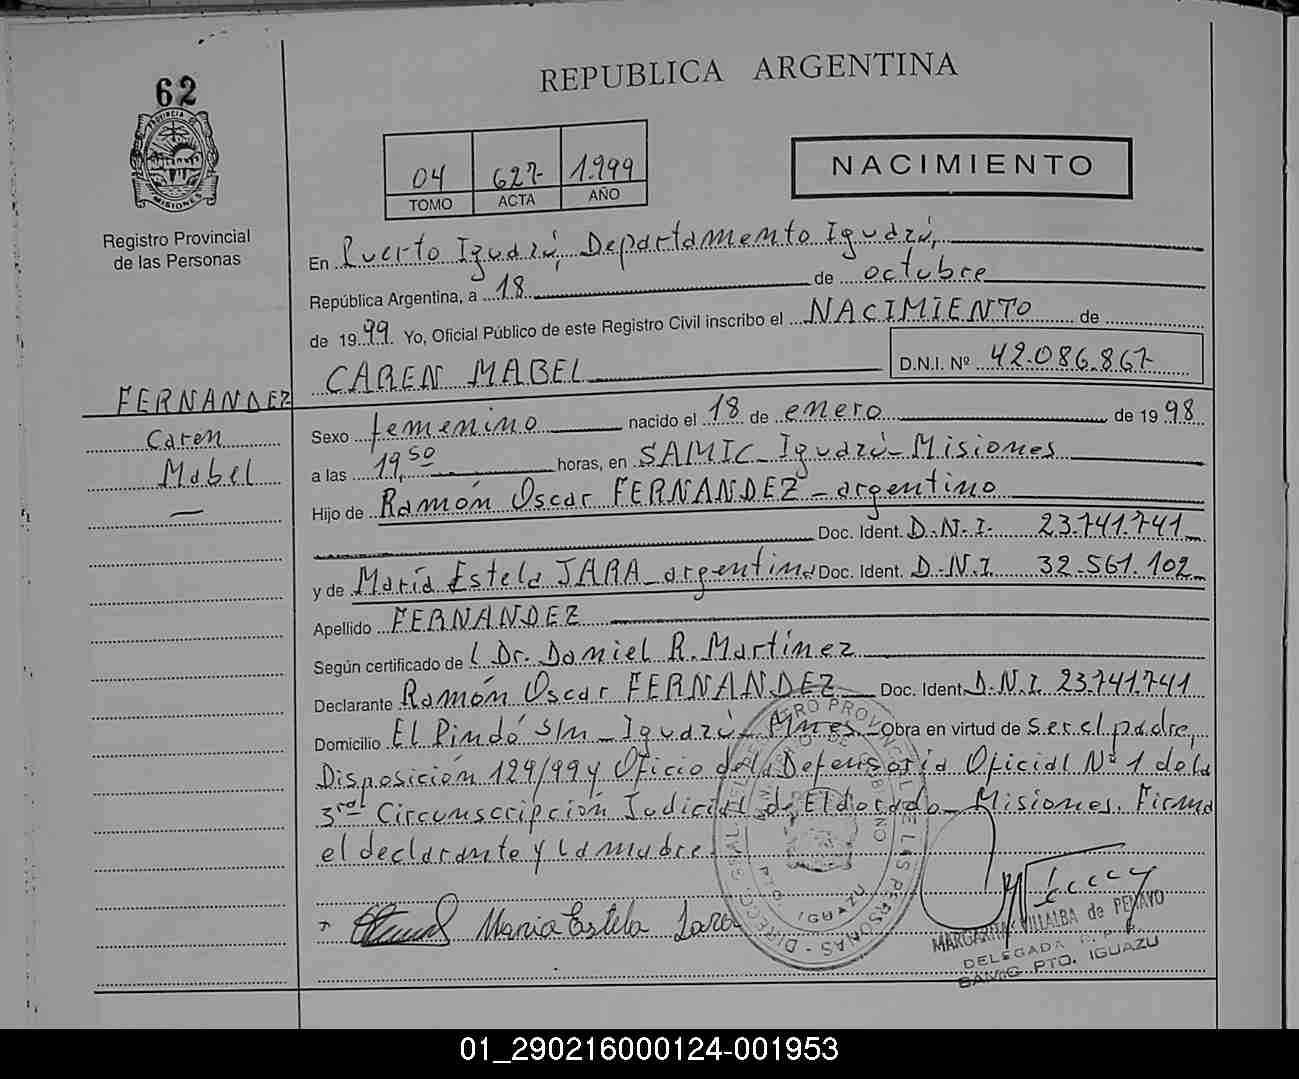 62
PROVINCIA DE
MISIONES
Registro Provincial
de las Personas
REPUBLICA ARGENTINA
04 627- 1.999
TOMO ACTA AÑO
NACIMIENTO
En Puerto Iguazú, Departamento Iguazú,
República Argentina, a 18 de octubre
de 1999. Yo, Oficial Público de este Registro Civil inscribo el NACIMIENTO de
CAREN MABEL D.N.I. Nº 42.086.867-
FERNANDEZ
Caren
Mabel
Sexo femenino nacido el 18 de enero de 1998
a las 19,50 horas, en SAMIC_Iguazú_Misiones
Hijo de Ramón Oscar FERNANDEZ_argentino
Doc. Ident. D.N.I. 23.741.741
y de María Estela JARA_argentina Doc. Ident. D.N.I 32.561.102
Apellido FERNANDEZ
Según certificado de l Dr. Daniel R. Martínez
Declarante Ramón Oscar FERNANDEZ Doc. Ident. D.N.I. 23.741.741
Domicilio El Pindó S/n_Iguazú_Mnes. Obra en virtud de Ser el padre,
Disposición 129/99 y Oficio de la Defensoría Oficial Nº 1 de la
3ra Circunscripción Judicial de Eldorado_Misiones. Firma
el declarante y la madre.
Maria Estela Jara
IGUAZU
MARGARITA VILLALBA de PENAYO
DELEGADA R.P.P.
SAMIC PTO. IGUAZU
01_290216000124-001953